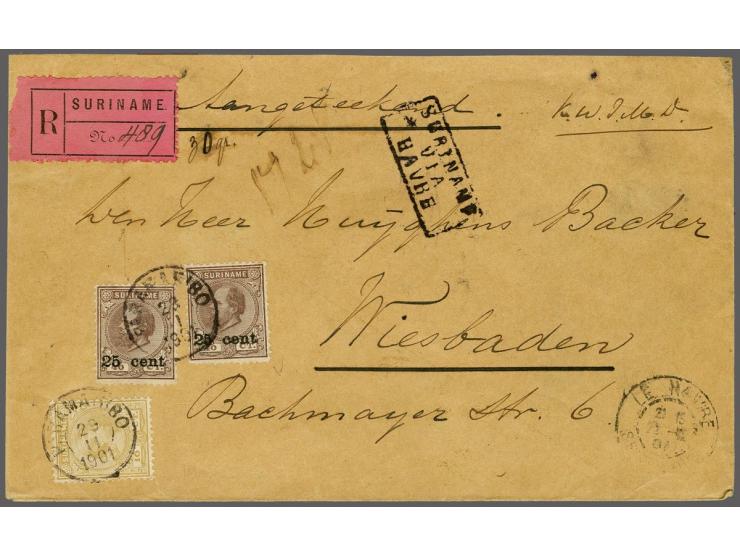 R SURINAME
No 489
Aangeteekend.
30 gr.
SURINAME
VIA
HAVRE
Den Heer Nuyens Backer
Wiesbaden
Bachmayer Str. 6
SURINAME
25 cent
SURINAME
25 cent
CT.
PARAMARIBO
1901
PARAMARIBO
1901
LE HAVRE